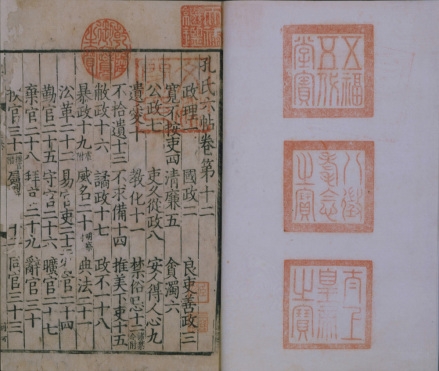 五福五代堂寶
八徵耄念之寶
太上皇帝之寶
天祿琳琅
乾隆御覽之寶
孔氏六帖卷第十二
政理一 國政二 良吏善政三
寬不按吏四 清廉五 貪濁六
公政七 吏久從政八 安人得人心九
遺愛十 教化十一 禁俗忌十二
不拾遺十三 不求備十四 推美下吏十五
敝政十六 譎政十七 政不一十八
暴政十九 威名二十 典法二十一
沿革二十二 易官吏二十三 官二十四
勤官二十五 守官二十六 曠官二十七
棄官二十八 拜官二十九 辭官三十
官三十一 同官三十三